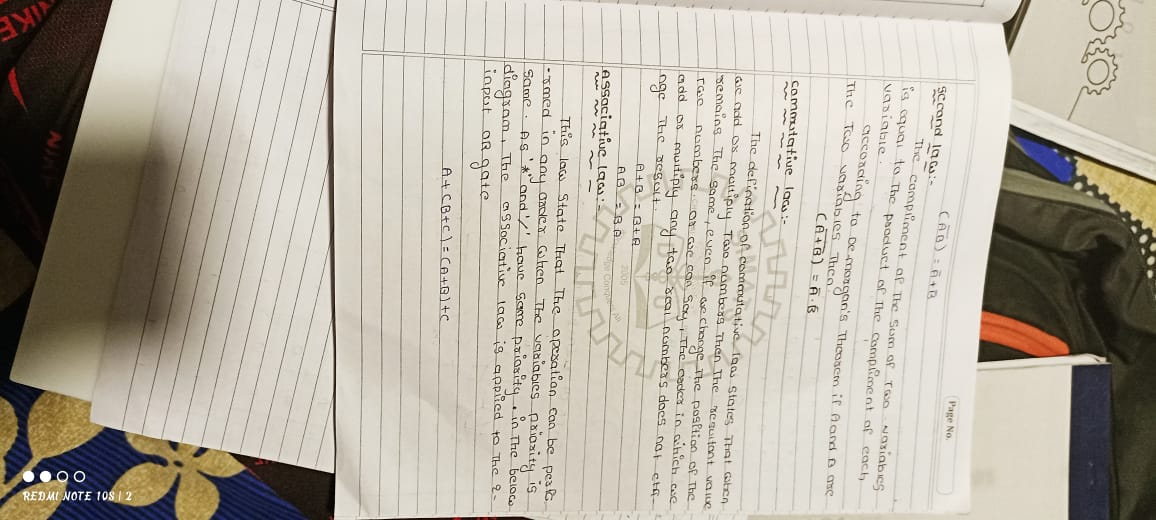 Page No.
(A̅B̅) = A̅+B̅
second law:-
The compliment of the sum of two variables
is equal to the product of the compliment of each
variable.
according to De-morgan's Theorem if A and B are
The Two variables then.
(A̅+B̅) = A̅.B̅
commutative law:-
The defination of commutative law states that when
we add or multiply Two numbers then the resultant value
remains the same, even if we change the position of the
Two numbers. or we can say, the order in which we
add or multiply any two real numbers does not cha
nge the result.
A+B = B+A
AB = BA
Associative law:-
This law state that the operation can be perfo
-rmed in any order when the variables priority is
same. As '*' and '/' have same priority. in the below
diagram, the associative law is applied to the 2-
input OR gate
A+(B+C)=(A+B)+C
2005
NIKE
REDMI NOTE 10S | 2